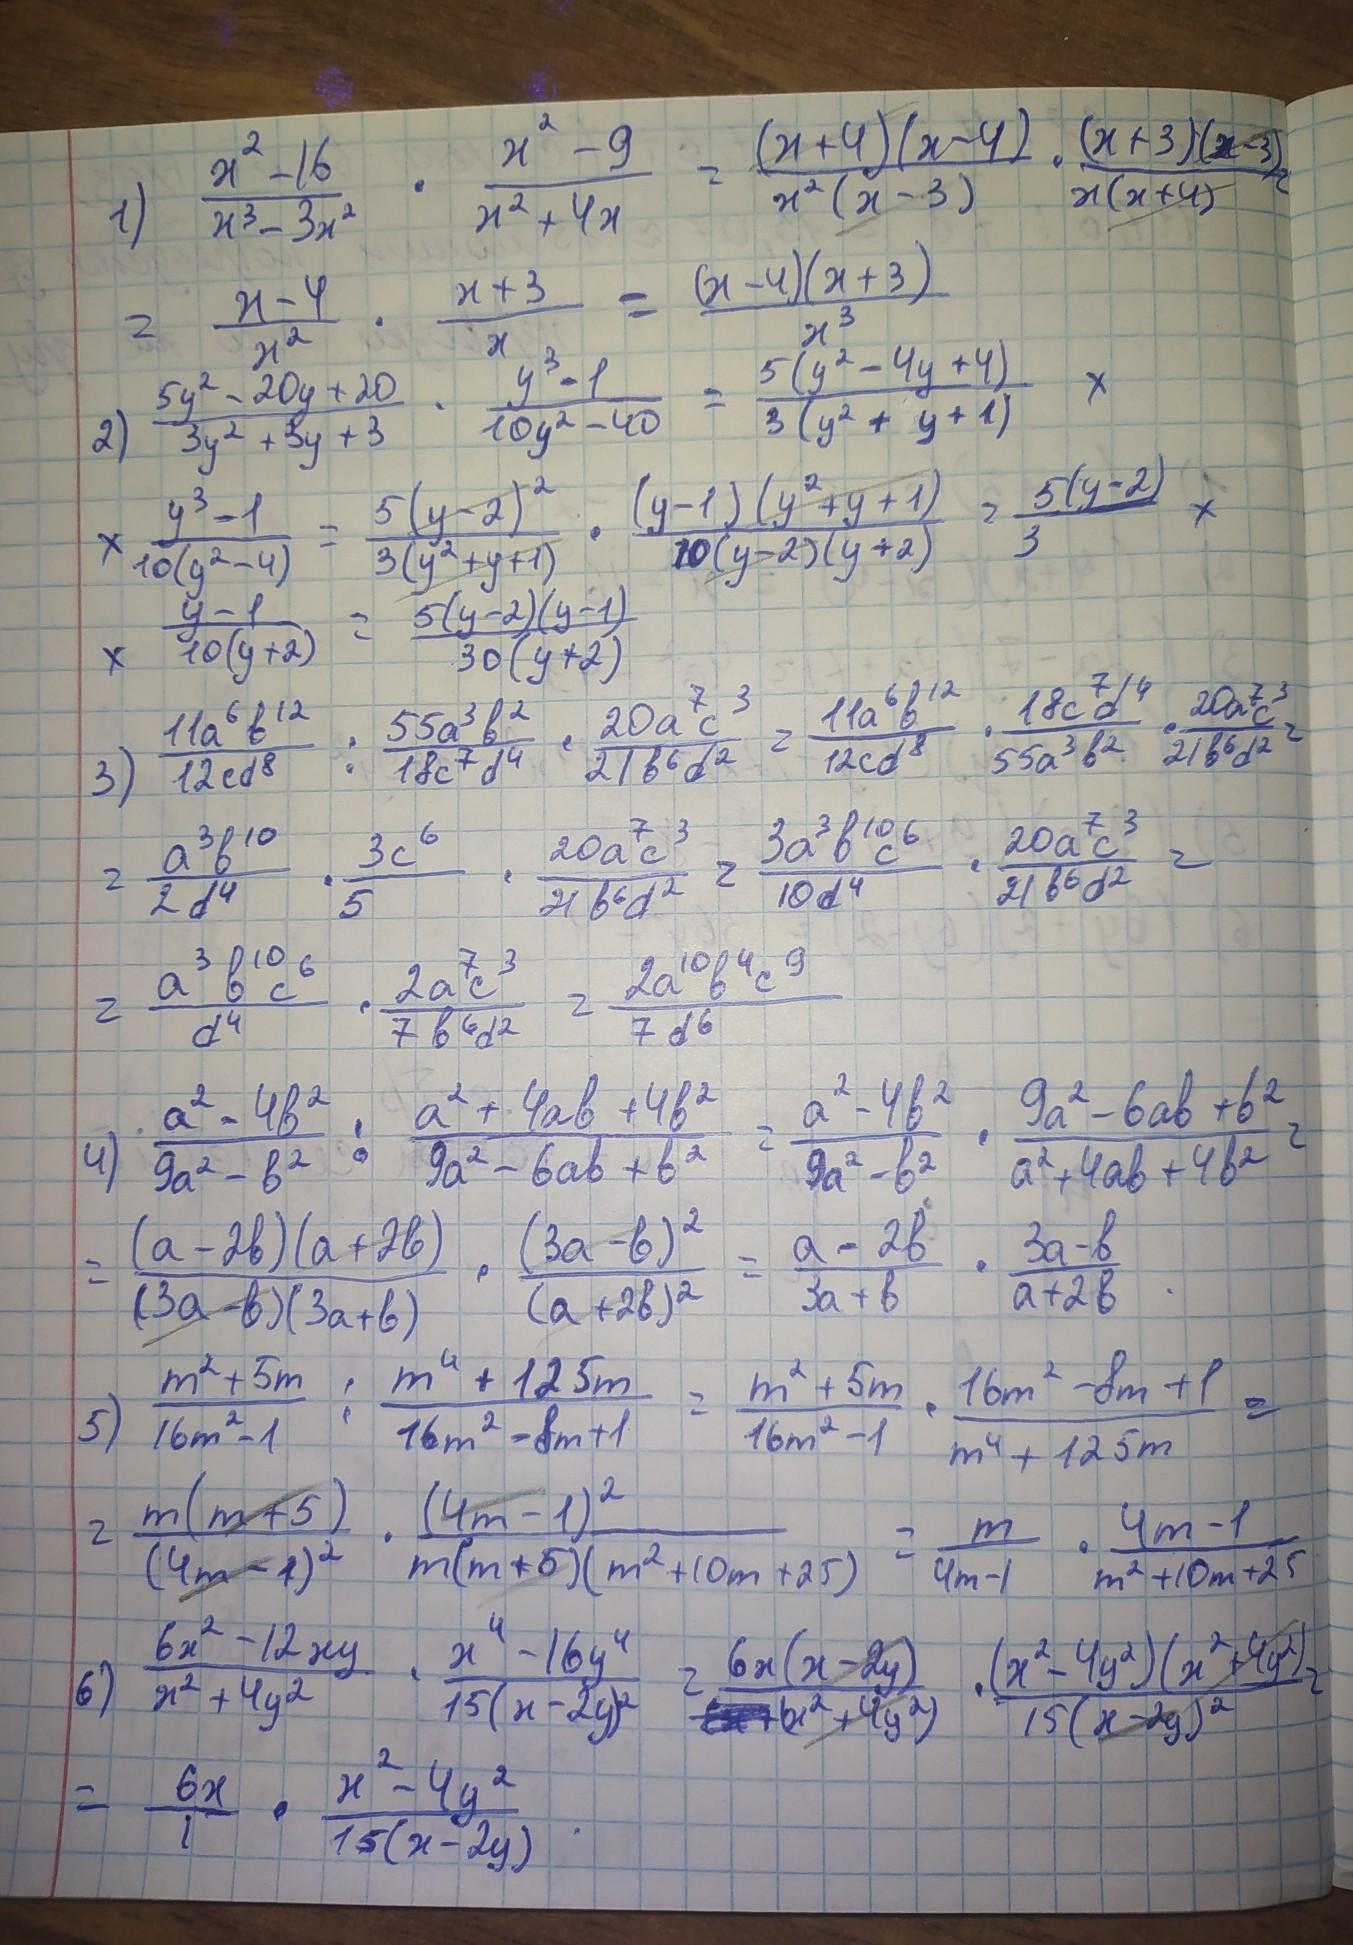 1) (x² - 16)/(x³ - 3x²) · (x² - 9)/(x² + 4x) = ((x+4)(x-4))/(x²(x-3)) · ((x+3)(x-3))/(x(x+4)) =
= (x-4)/x² · (x+3)/x = ((x-4)(x+3))/x³
2) (5y² - 20y + 20)/(3y² + 3y + 3) · (y³ - 1)/(10y² - 40) = (5(y² - 4y + 4))/(3(y² + y + 1)) ×
× (y³ - 1)/(10(y² - 4)) = (5(y-2)²)/(3(y²+y+1)) · ((y-1)(y²+y+1))/(10(y-2)(y+2)) = (5(y-2))/3 ×
× (y-1)/(10(y+2)) = (5(y-2)(y-1))/(30(y+2))
3) (11a⁶b¹²)/(12cd⁸) : (55a³b²)/(18c⁷d⁴) · (20a⁷c³)/(21b⁶d²) = (11a⁶b¹²)/(12cd⁸) · (18c⁷d⁴)/(55a³b²) · (20a⁷c³)/(21b⁶d²) =
= (a³b¹⁰)/(2d⁴) · (3c⁶)/5 · (20a⁷c³)/(21b⁶d²) = (3a³b¹⁰c⁶)/(10d⁴) · (20a⁷c³)/(21b⁶d²) =
= (a³b¹⁰c⁶)/d⁴ · (2a⁷c³)/(7b⁶d²) = (2a¹⁰b⁴c⁹)/(7d⁶)
4) (a² - 4b²)/(9a² - b²) : (a² + 4ab + 4b²)/(9a² - 6ab + b²) = (a² - 4b²)/(9a² - b²) · (9a² - 6ab + b²)/(a² + 4ab + 4b²) =
= ((a-2b)(a+2b))/((3a-b)(3a+b)) · (3a-b)²/(a+2b)² = (a-2b)/(3a+b) · (3a-b)/(a+2b).
5) (m² + 5m)/(16m² - 1) : (m⁴ + 125m)/(16m² - 8m + 1) = (m² + 5m)/(16m² - 1) · (16m² - 8m + 1)/(m⁴ + 125m) =
= (m(m+5))/(4m-1)² · (4m-1)²/(m(m+5)(m²+10m+25)) = m/(4m-1) · (4m-1)/(m²+10m+25)
6) (6x² - 12xy)/(x² + 4y²) · (x⁴ - 16y⁴)/(15(x-2y)²) = (6x(x-2y))/(x²+4y²) · ((x²-4y²)(x²+4y²))/(15(x-2y)²) =
= 6x/1 · (x² - 4y²)/(15(x-2y)).